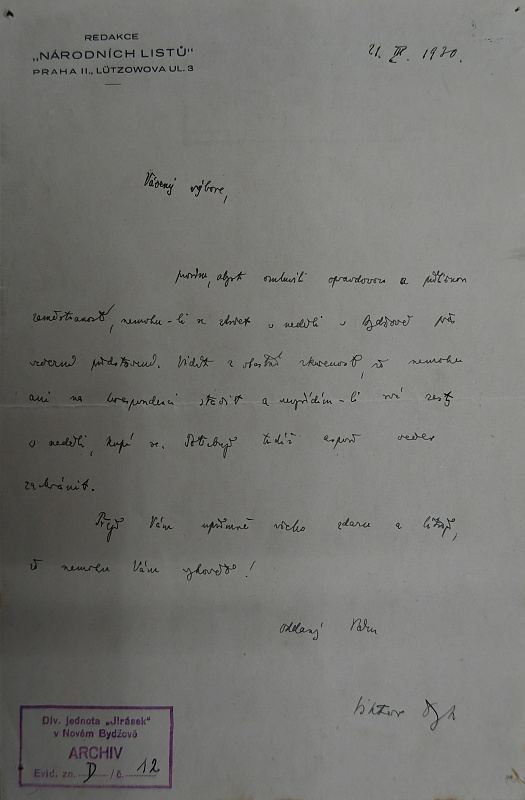 REDAKCE
„NÁRODNÍCH LISTŮ"
PRAHA II., LÜTZOWOVA UL. 3
21. 1930.
Vážený výbore,
prosím, abyste omluvili opravdovou a
zaměstnanost, nemohu-li se v neděli v Bydžově
představení. Vidíte z vlastní zkušenosti, že nemohu
ani na korespondenci stačit a -li své resty
v neděli, kupí se. Potřebuji tudíž aspoň večer
zachránit.
Přeji Vám upřímně všeho zdaru a lituji,
že nemohu Vám vyhověti!
oddaný Vám
Viktor Dyk
Div. jednota „Jirásek"
v Novém Bydžově
ARCHIV
Evid. zn. D / č. 12